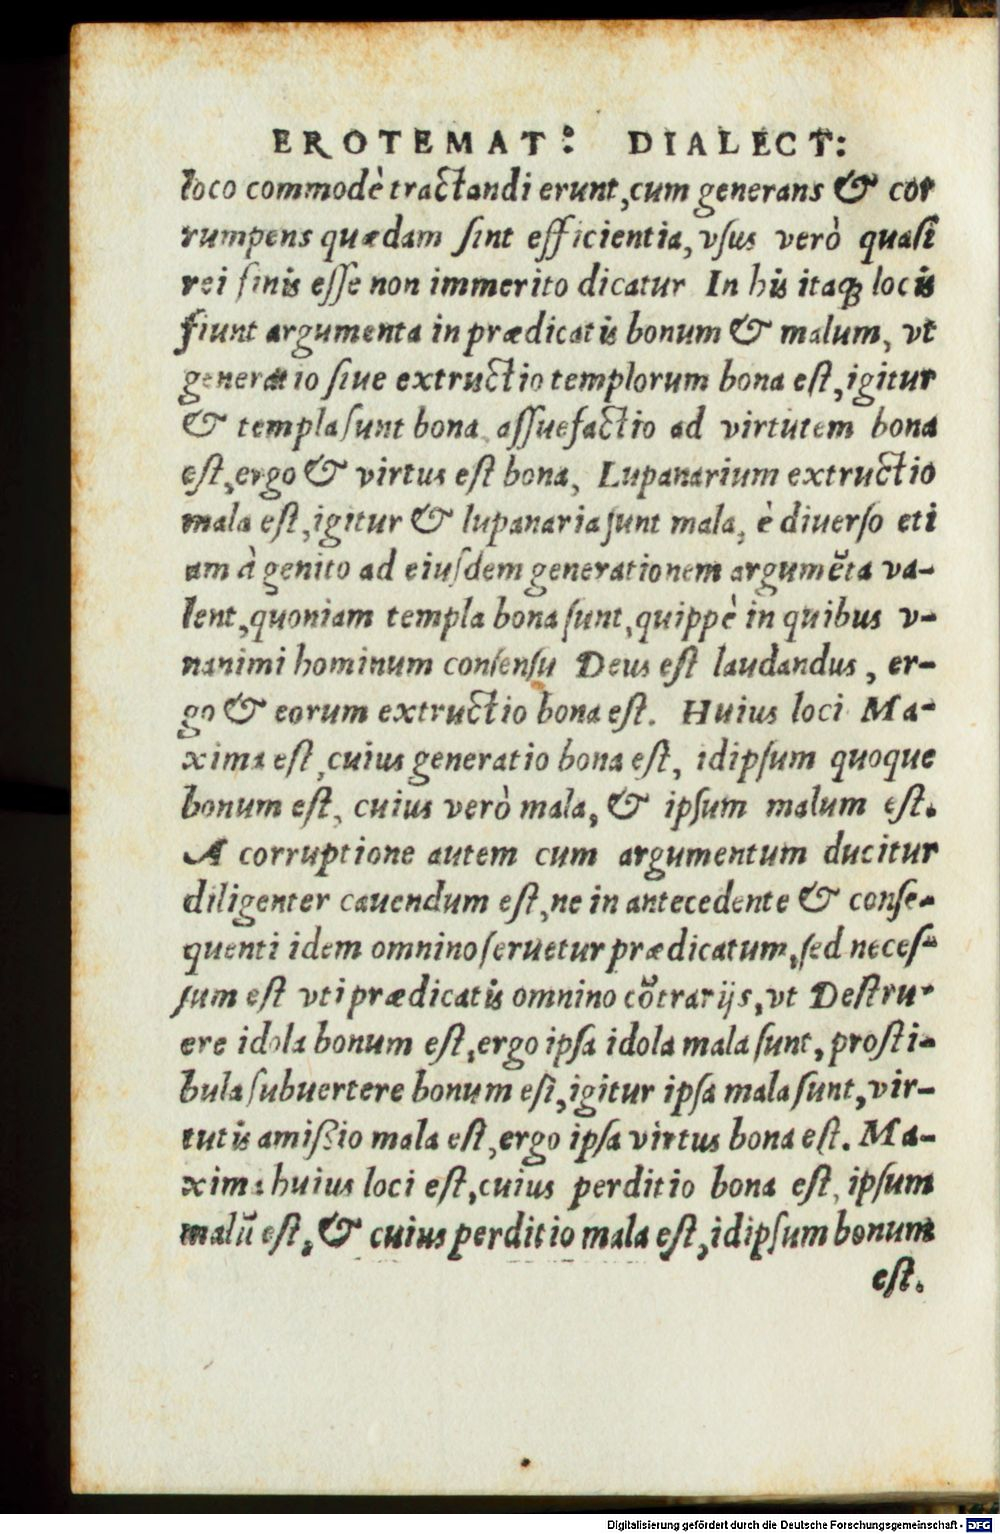 EROTEMAT: DIALECT:
loco commodè tractandi erunt, cum generans & cor
rumpens quædam ſint efficientia, vſus verò quaſi
rei finis eſſe non immerito dicatur In his itaqꝫ locis
fiunt argumenta in prædicatis bonum & malum, vt
generatio ſiue extructio templorum bona eſt, igitur
& templa ſunt bona, aſſuefactio ad virtutem bona
eſt, ergo & virtus eſt bona, Lupanarium extructio
mala eſt, igitur & lupanaria ſunt mala, è diuerſo eti
am à genito ad eiuſdem generationem argumẽta va-
lent, quoniam templa bona ſunt, quippè in quibus v-
nanimi hominum conſenſu Deus eſt laudandus, er-
go & eorum extructio bona eſt. Huius loci Ma-
xima eſt, cuius generatio bona eſt, idipſum quoque
bonum eſt, cuius verò mala, & ipſum malum eſt.
A corruptione autem cum argumentum ducitur
diligenter cauendum eſt, ne in antecedente & conſe-
quenti idem omnino ſeruetur prædicatum, ſed neceſ-
ſum eſt vti prædicatis omnino cõtrarijs, vt Deſtru-
ere idola bonum eſt, ergo ipſa idola mala ſunt, proſti-
bula ſubuertere bonum eſt, igitur ipſa mala ſunt, vir-
tutis amiſsio mala eſt, ergo ipſa virtus bona eſt. Ma-
xima huius loci eſt, cuius perditio bona eſt, ipſum
malũ eſt, & cuius perditio mala eſt, idipſum bonum
eſt.
Digitalisierung gefördert durch die Deutsche Forschungsgemeinschaft - DFG